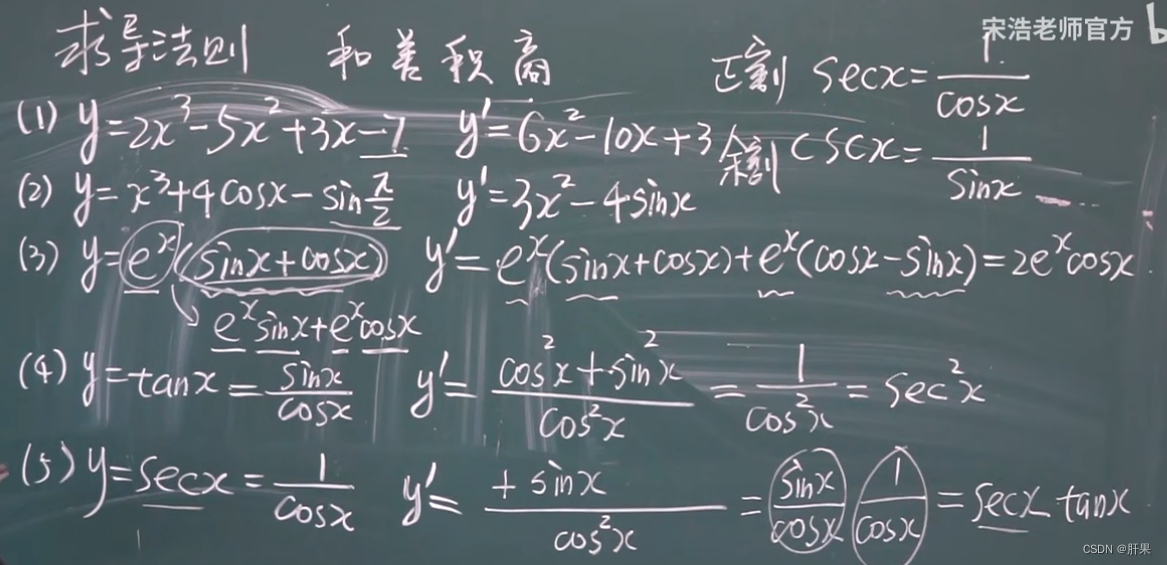 宋浩老师官方 b
求导法则 和差积商 正割 secx = 1/cosx
(1) y=2x³-5x²+3x-7 y'=6x²-10x+3 余割 cscx = 1/sinx
(2) y=x³+4cosx-sin π/2 y'=3x²-4sinx
(3) y=eˣ(sinx+cosx) y'=eˣ(sinx+cosx)+eˣ(cosx-sinx)=2eˣcosx
eˣsinx+eˣcosx
(4) y=tanx = sinx/cosx y'= (cos²x+sin²x)/cos²x = 1/cos²x = sec²x
(5) y=secx = 1/cosx y'= +sinx/cos²x = sinx/cosx 1/cosx = secx tanx
CSDN @肝果